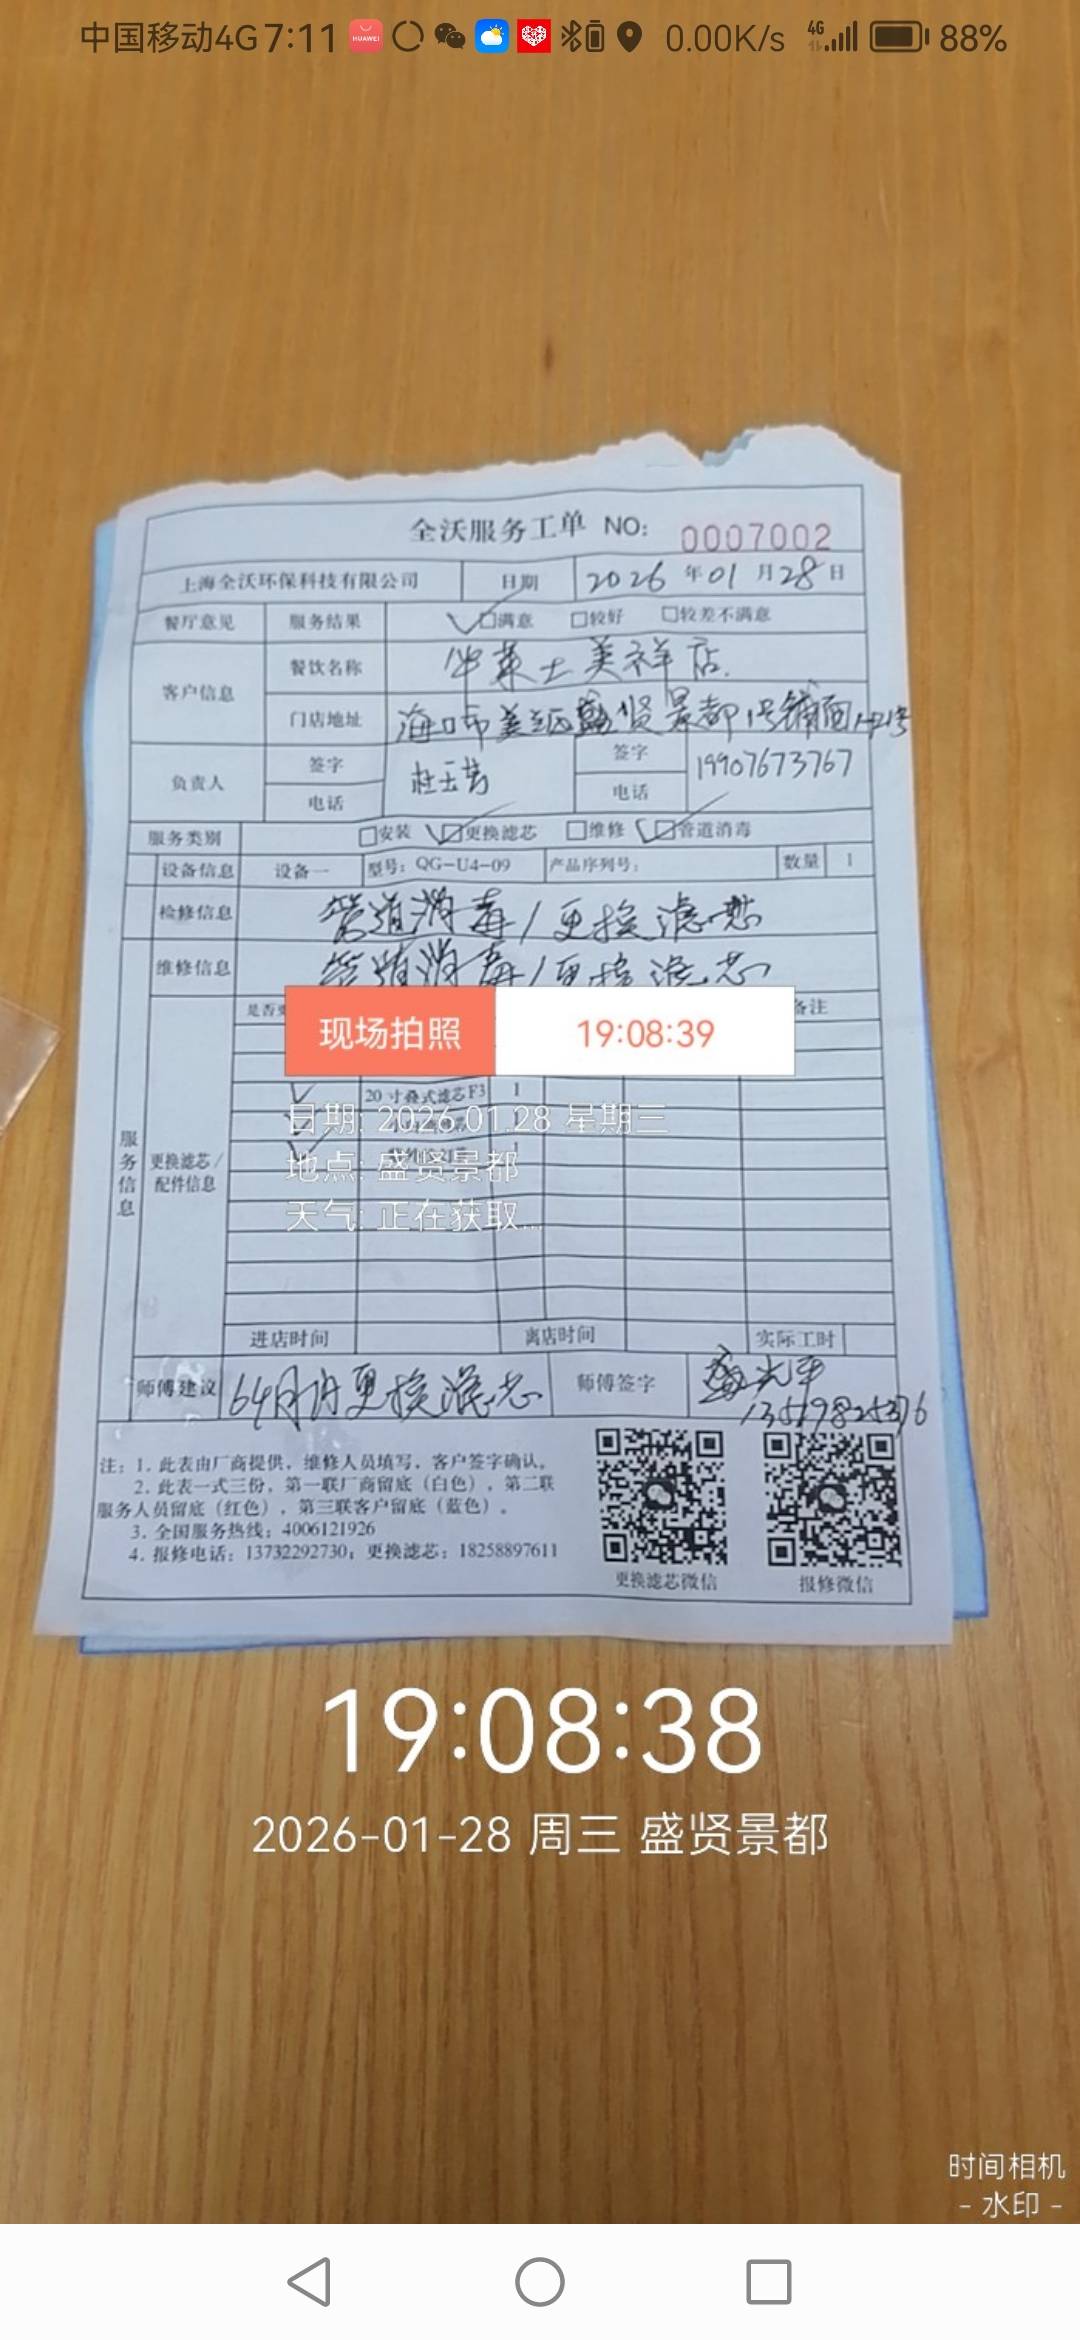 中国移动4G 7:11 HUAWEI 0.00K/s 4G 88%
全沃服务工单 NO: 0007002
上海全沃环保科技有限公司 日期 2026 年 01 月 28 日
餐厅意见 服务结果 满意 较好 较差不满意
客户信息 餐饮名称 华莱士美祥店
门店地址 海口市美兰区盛贤景都1号铺面
负责人 签字 签字 19907673767
电话 杜玉芳 电话
服务类别 安装 更换滤芯 维修 管道消毒
设备信息 设备一 型号: QG-U4-09 产品序列号: 数量 1
检修信息 管道消毒/更换滤芯
维修信息 管道消毒/更换滤芯
是否更 备注
现场拍照 19:08:39
20寸叠式滤芯F3 1
日期: 2026.01.28 星期三
地点: 盛贤景都
天气: 正在获取...
服务信息 更换滤芯/配件信息
进店时间 离店时间 实际工时
师傅建议 更换滤芯 师傅签字 盛光平
注: 1. 此表由厂商提供，维修人员填写，客户签字确认。
2. 此表一式三份，第一联厂商留底（白色），第二联
服务人员留底（红色），第三联客户留底（蓝色）。
3. 全国服务热线: 4006121926
4. 报修电话: 13732292730; 更换滤芯: 18258897611
更换滤芯微信 报修微信
19:08:38
2026-01-28 周三 盛贤景都
时间相机
- 水印 -